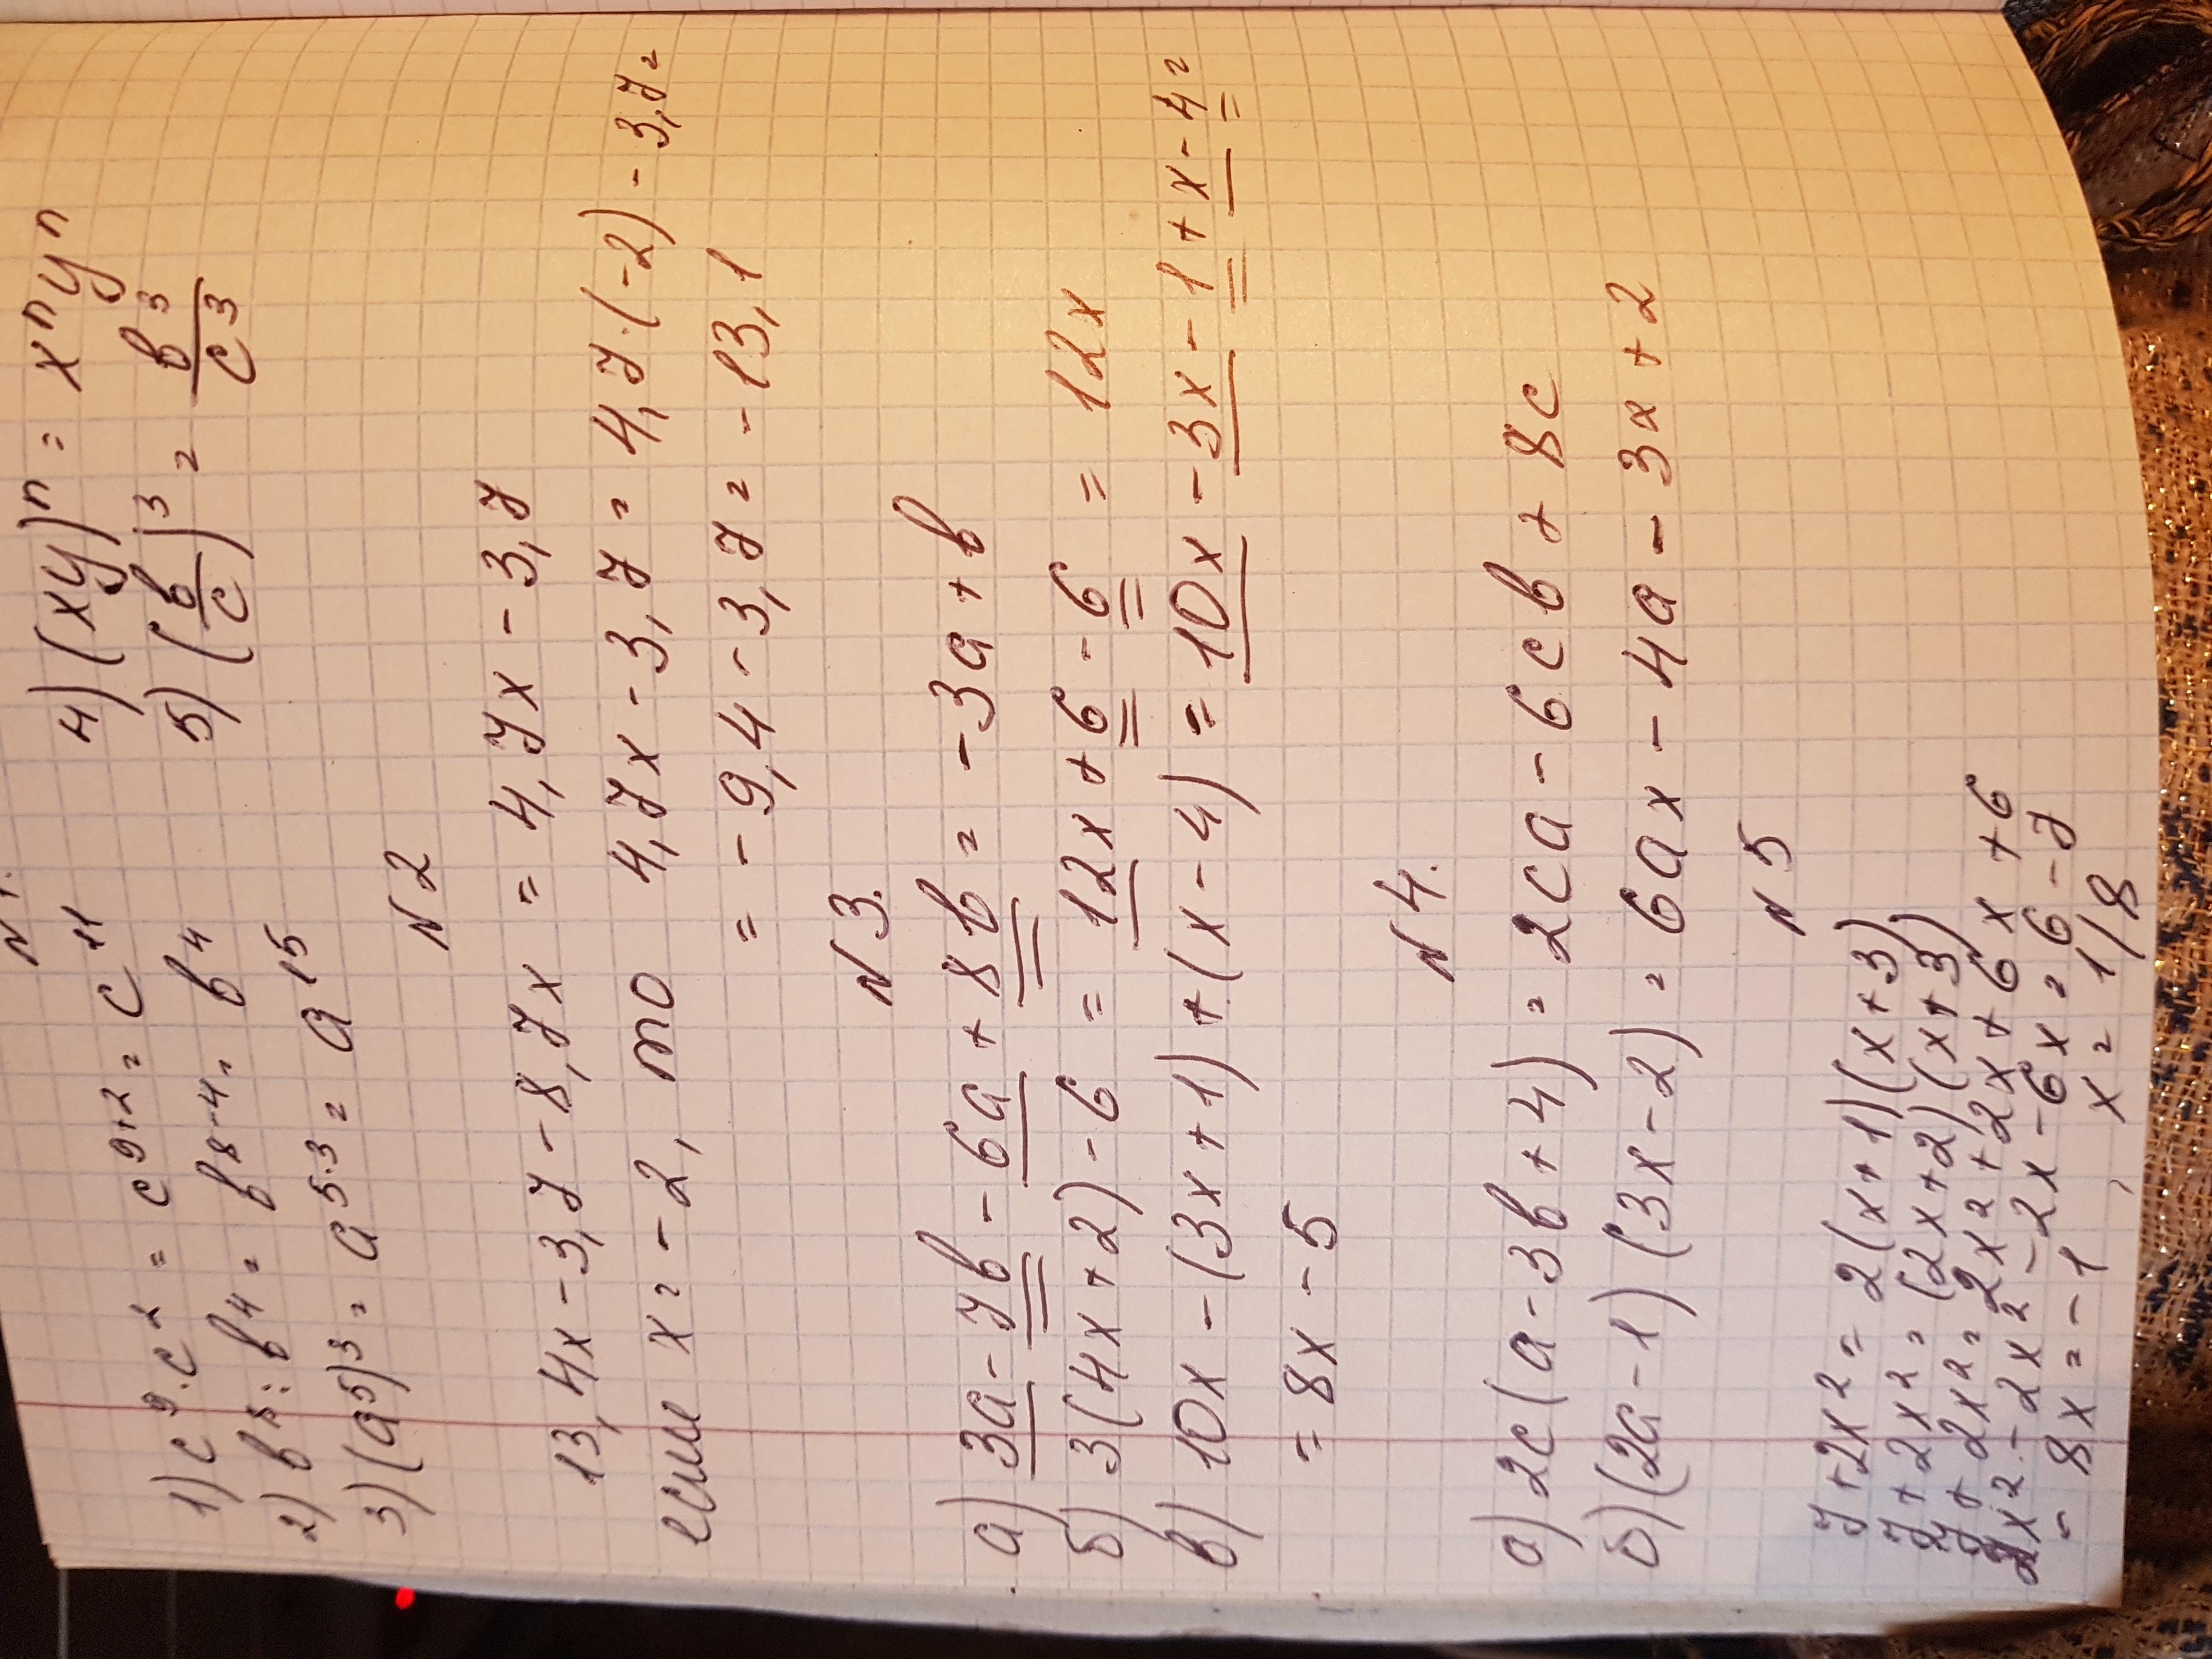 N 1.
1) c⁹·c² = c⁹⁺² = c¹¹
2) в⁸ : в⁴ = в⁸⁻⁴ = в⁴
3) (a⁵)³ = a⁵·³ = a¹⁵
4) (xy)ⁿ = xⁿyⁿ
5) (в/c)³ = в³/c³
N 2
13,4x - 3,7 - 8,7x = 4,7x - 3,7
если x = -2, то 4,7x - 3,7 = 4,7·(-2) - 3,7 =
= -9,4 - 3,7 = -13,1
N 3.
а) 3a - 7в - 6a + 8в = -3a + в
б) 3(4x + 2) - 6 = 12x + 6 - 6 = 12x
в) 10x - (3x + 1) + (x - 4) = 10x - 3x - 1 + x - 4 =
= 8x - 5
N 4.
а) 2c(a - 3в + 4) = 2ca - 6cв + 8c
б) (2a - 1)(3x - 2) = 6ax - 4a - 3x + 2
N 5
7 + 2x² = 2(x + 1)(x + 3)
7 + 2x² = (2x + 2)(x + 3)
7 + 2x² = 2x² + 2x + 6x + 6
2x² - 2x² - 2x - 6x = 6 - 7
- 8x = -1 x = 1/8